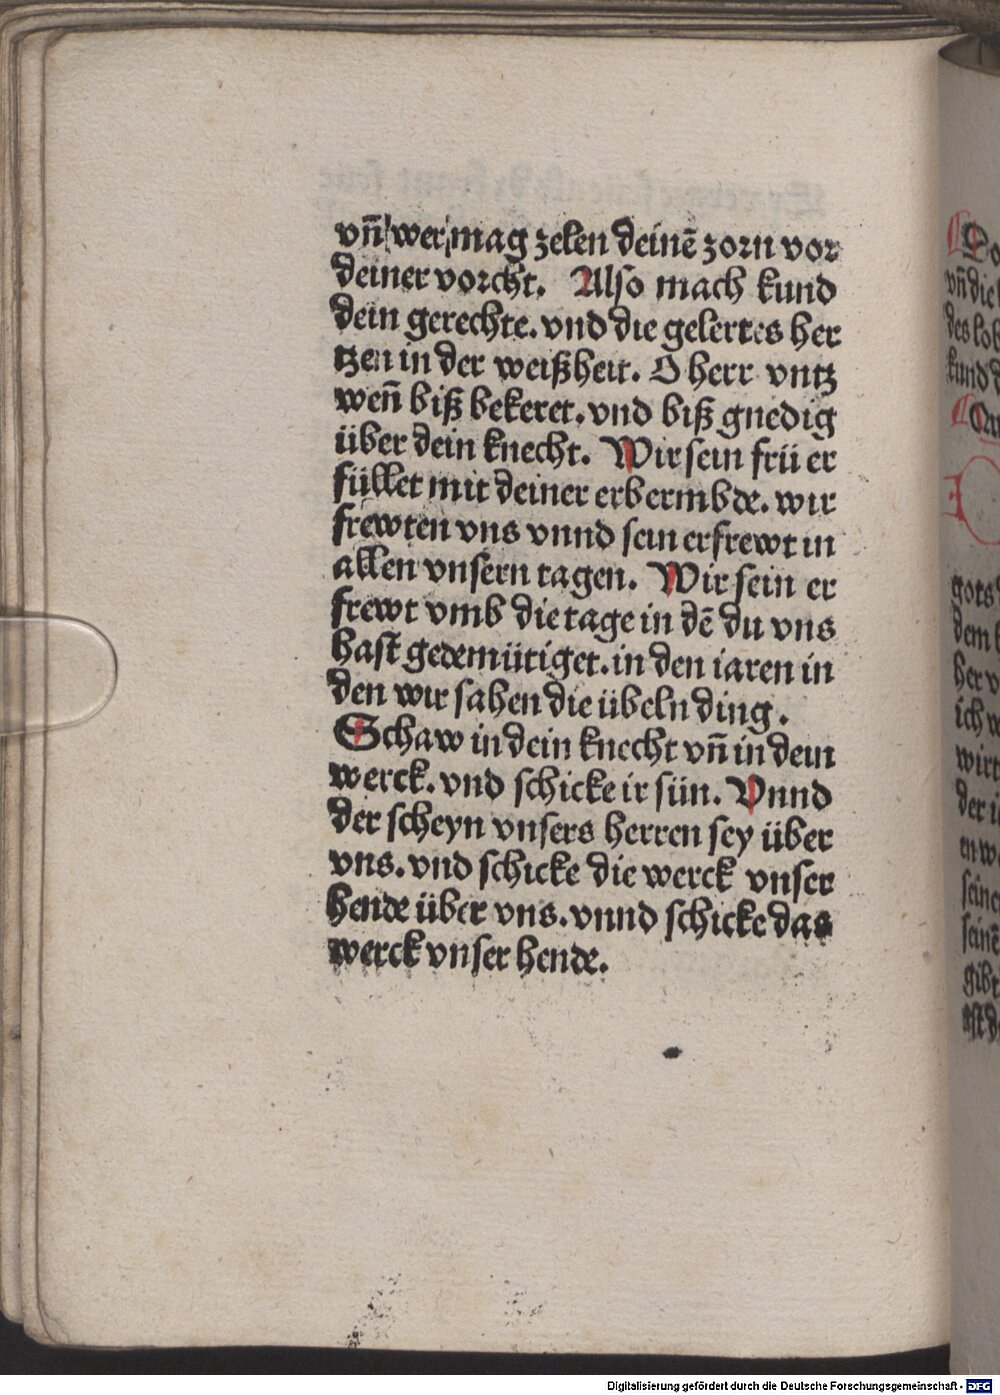 vñ wer mag zelen deinē zorn vor
deiner vorcht. Also mach kund
dein gerechte. vnd die gelertes her
tzen in der weißheit. O herr vntz
weñ biß bekeret. vnd biß gnedig
über dein knecht. Wir sein frü er
füllet mit deiner erbermbde. wir
frewten vns vnnd sein erfrewt in
allen vnsern tagen. Wir sein er
frewt vmb die tage in dē du vns
hast gedemütiget. in den iaren in
den wir sahen die übeln ding.
Schaw in dein knecht vñ in dein
werck. vnd schicke ir sün. Vnnd
der scheyn vnsers herren sey über
vns. vnd schicke die werck vnser
hende über vns. vnnd schicke das
werck vnser hende.
vñ die
des lob
kund
gots
dem
her v
ich w
wirt
der i
en w
seine
seinē
gibt
Digitalisierung gefördert durch die Deutsche Forschungsgemeinschaft - DFG